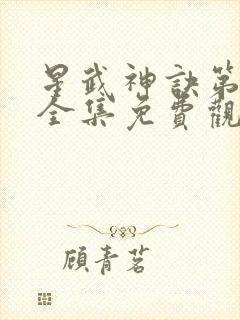 星武神訣第
全集免費觀
顧青茗